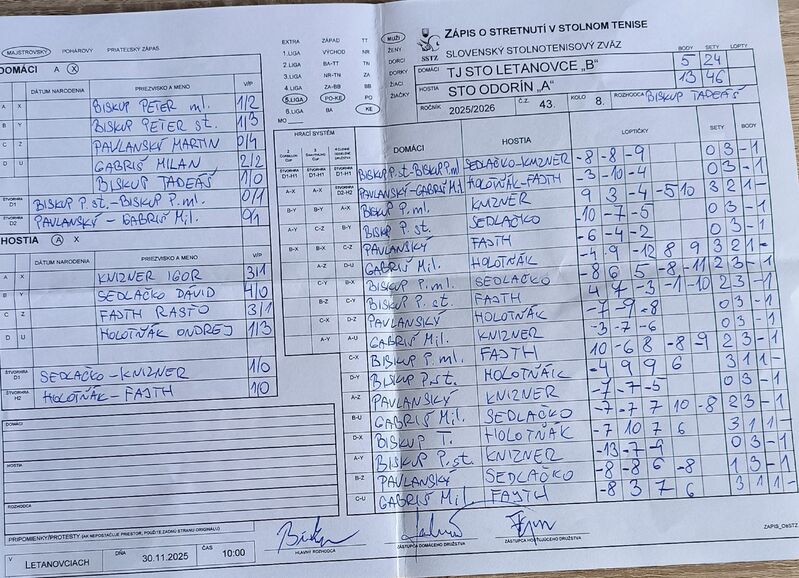 MAJSTROVSKÝ POHÁROVÝ PRIATEĽSKÝ ZÁPAS
DOMÁCI A X
DÁTUM NARODENIA PRIEZVISKO A MENO V/P
A X BISKUP PETER ml. 1/2
B Y BISKUP PETER st. 1/3
C Z PAVLANSKÝ MARTIN 0/4
D U GABRIŠ MILAN 2/2
BISKUP TADEÁŠ 1/0
ŠTVORHRA D1 BISKUP P. st. - BISKUP P. ml. 0/1
ŠTVORHRA D2 PAVLANSKÝ - GABRIŠ Mil. 0/1
HOSTIA A X
DÁTUM NARODENIA PRIEZVISKO A MENO V/P
A X KNIZNER IGOR 3/1
B Y SEDLAČKO DÁVID 4/0
C Z FAJTH RASŤO 3/1
D U HOLOTŇÁK ONDREJ 1/3
ŠTVORHRA D1 SEDLAČKO - KNIZNER 1/0
ŠTVORHRA H2 HOLOTŇÁK - FAJTH 1/0
DOMÁCI
HOSTIA
ROZHODCA
PRIPOMIENKY/PROTESTY (AK NEPOSTAČUJE PRIESTOR, POUŽITE ZADNÚ STRANU ORIGINÁLU)
V LETANOVCIACH DŇA 30.11.2025 ČAS 10:00
EXTRA ZÁPAD TT
1.LIGA VÝCHOD NR
2.LIGA BA-TT TN
3.LIGA NR-TN ZA
4.LIGA ZA-BB BB
5.LIGA PO-KE PO
6.LIGA BA KE
MO
HRACÍ SYSTÉM
MUŽI
ŽENY
DORCI
DORKY
ŽIACI
ŽIAČKY
SSTZ
ZÁPIS O STRETNUTÍ V STOLNOM TENISE
SLOVENSKÝ STOLNOTENISOVÝ ZVÄZ
BODY SETY LOPTY
DOMÁCI TJ STO LETANOVCE „B" 5 24
HOSTIA STO ODORÍN „A" 13 46
ROČNÍK 2025/2026 Č.Z. 43. KOLO 8. ROZHODCA BISKUP TADEÁŠ
DOMÁCI HOSTIA LOPTIČKY SETY BODY
D1-H1 D1-H1 D1-H1 BISKUP P. st. - BISKUP P. ml SEDLAČKO - KNIZNER -8 -8 -9 0 3 - 1
A-X D2-H2 PAVLANSKÝ - GABRIŠ Mil HOLOTŇÁK - FAJTH -3 -10 -4 0 3 - 1
B-Y B-Y A-X BISKUP P. ml. KNIZNER 9 3 -4 -5 10 3 2 1 -
A-Y C-Z B-Y BISKUP P. st. SEDLAČKO -10 -7 -5 0 3 - 1
B-X B-X C-Z PAVLANSKÝ FAJTH -6 -4 -2 0 3 - 1
A-Z D-U GABRIŠ Mil. HOLOTŇÁK -4 9 -12 8 9 3 2 1 -
C-Y B-X BISKUP P. ml SEDLAČKO -8 6 5 -8 -11 2 3 - 1
B-Z C-Y BISKUP P. st. FAJTH 4 7 -3 -1 -10 2 3 - 1
C-X D-Z PAVLANSKÝ HOLOTŇÁK -7 -9 -8 0 3 - 1
A-Y A-U GABRIŠ Mil. KNIZNER -3 -7 -6 0 3 - 1
C-X BISKUP P. ml. FAJTH 10 -6 8 -8 -9 2 3 - 1
D-Y BISKUP P. st. HOLOTŇÁK -4 9 9 6 3 1 1 -
A-Z PAVLANSKÝ KNIZNER -7 -7 -5 0 3 - 1
B-U GABRIŠ Mil. SEDLAČKO -7 -7 7 10 -8 2 3 - 1
D-X BISKUP T. HOLOTŇÁK -7 10 7 6 3 1 1 -
A-Y BISKUP P. st. KNIZNER -13 -7 -9 0 3 - 1
B-Z PAVLANSKÝ SEDLAČKO -8 -8 6 -8 1 3 - 1
C-U GABRIŠ Mil. FAJTH -8 3 7 6 3 1 1 -
HLAVNÝ ROZHODCA ZÁSTUPCA DOMÁCEHO DRUŽSTVA ZÁSTUPCA HOSŤUJÚCEHO DRUŽSTVA
ZAPIS_ObSTZ